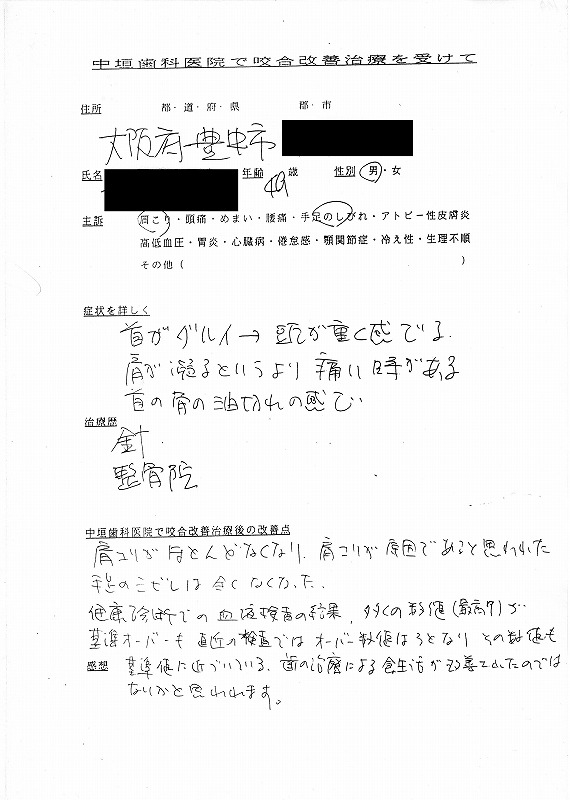 中垣歯科医院で咬合改善治療を受けて
住所 都・道・府・県 郡・市
大阪府豊中市
氏名 年齢 49 歳 性別 男・女
主訴 肩こり・頭痛・めまい・腰痛・手足のしびれ・アトピー性皮膚炎
高低血圧・胃炎・心臓病・倦怠感・顎関節症・冷え性・生理不順
その他( )
症状を詳しく
首がダルイ→頭が重く感でる。
肩が凝るというより痛い時がある
首の骨の油切れの感で
治療歴
針
整骨院
中垣歯科医院で咬合改善治療後の改善点
肩コリがほとんどなくなり、肩コリが原因であると思われた
手足のシビレは全くなくなった。
健康診断での血液検査の結果、多くの数値(最高7)が
基準オーバーも直近の検査ではオーバー数値は3となりその数値も
感想 基準値に近づいている、歯の治療による食生活が改善されたのでは
ないかと思われます。